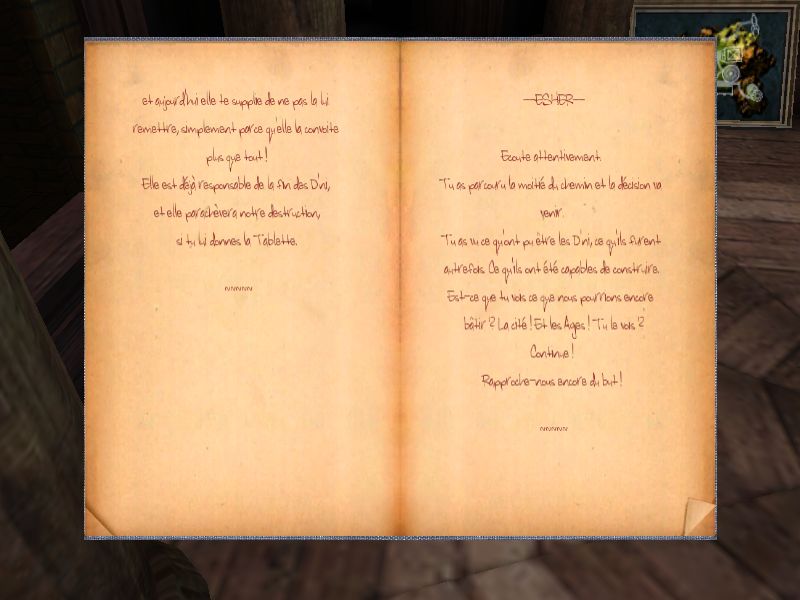 et aujourd'hui elle te supplie de ne pas la lui
remettre, simplement parce qu'elle la convoite
plus que tout !
Elle est déjà responsable de la fin des D'ni,
et elle parachèvera notre destruction,
si tu lui donnes la Tablette.
~~~~~
ESHER
Ecoute attentivement.
Tu as parcouru la moitié du chemin et la décision va
venir.
Tu as vu ce qu'ont pu être les D'ni, ce qu'ils furent
autrefois. Ce qu'ils ont été capables de construire.
Est-ce que tu vois ce que nous pourrions encore
bâtir ? La cité ! Et les Ages ! Tu le vois ?
Continue !
Rapproche-nous encore du but !
~~~~~